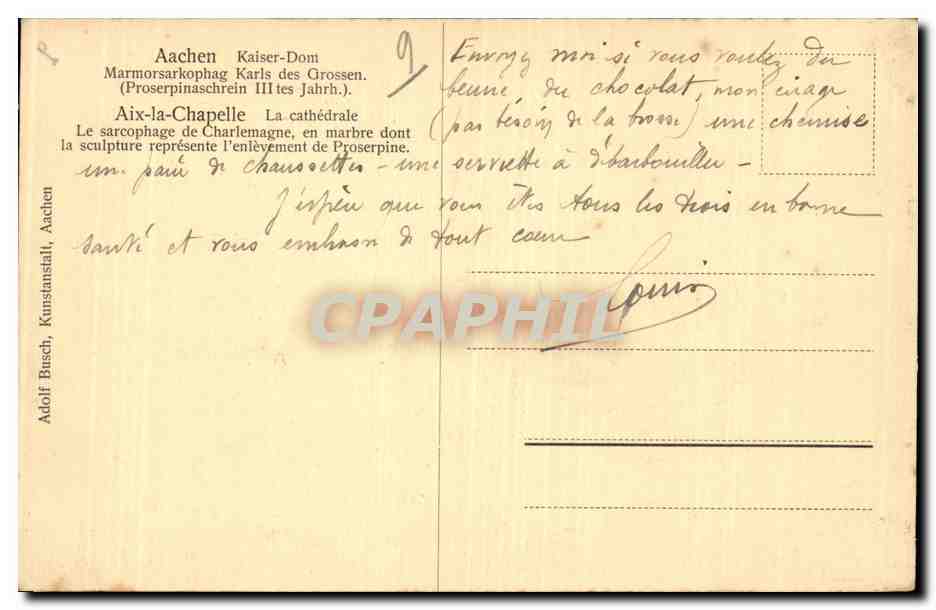 Aachen Kaiser-Dom
Marmorsarkophag Karls des Grossen.
(Proserpinaschrein III tes Jahrh.).
Aix-la-Chapelle La cathédrale
Le sarcophage de Charlemagne, en marbre dont
la sculpture représente l'enlèvement de Proserpine.
Adolf Busch, Kunstanstalt, Aachen
9
Envoyez moi si vous voulez du
beurre, du chocolat, mon cirage
(pas bésoin de la brosse) une chemise
une paire de chaussettes - une serviette à débarbouiller -
J'espère que vous êtes tous les trois en bonne
santé et vous embrasse de tout coeur
Louis
CPAPHIL